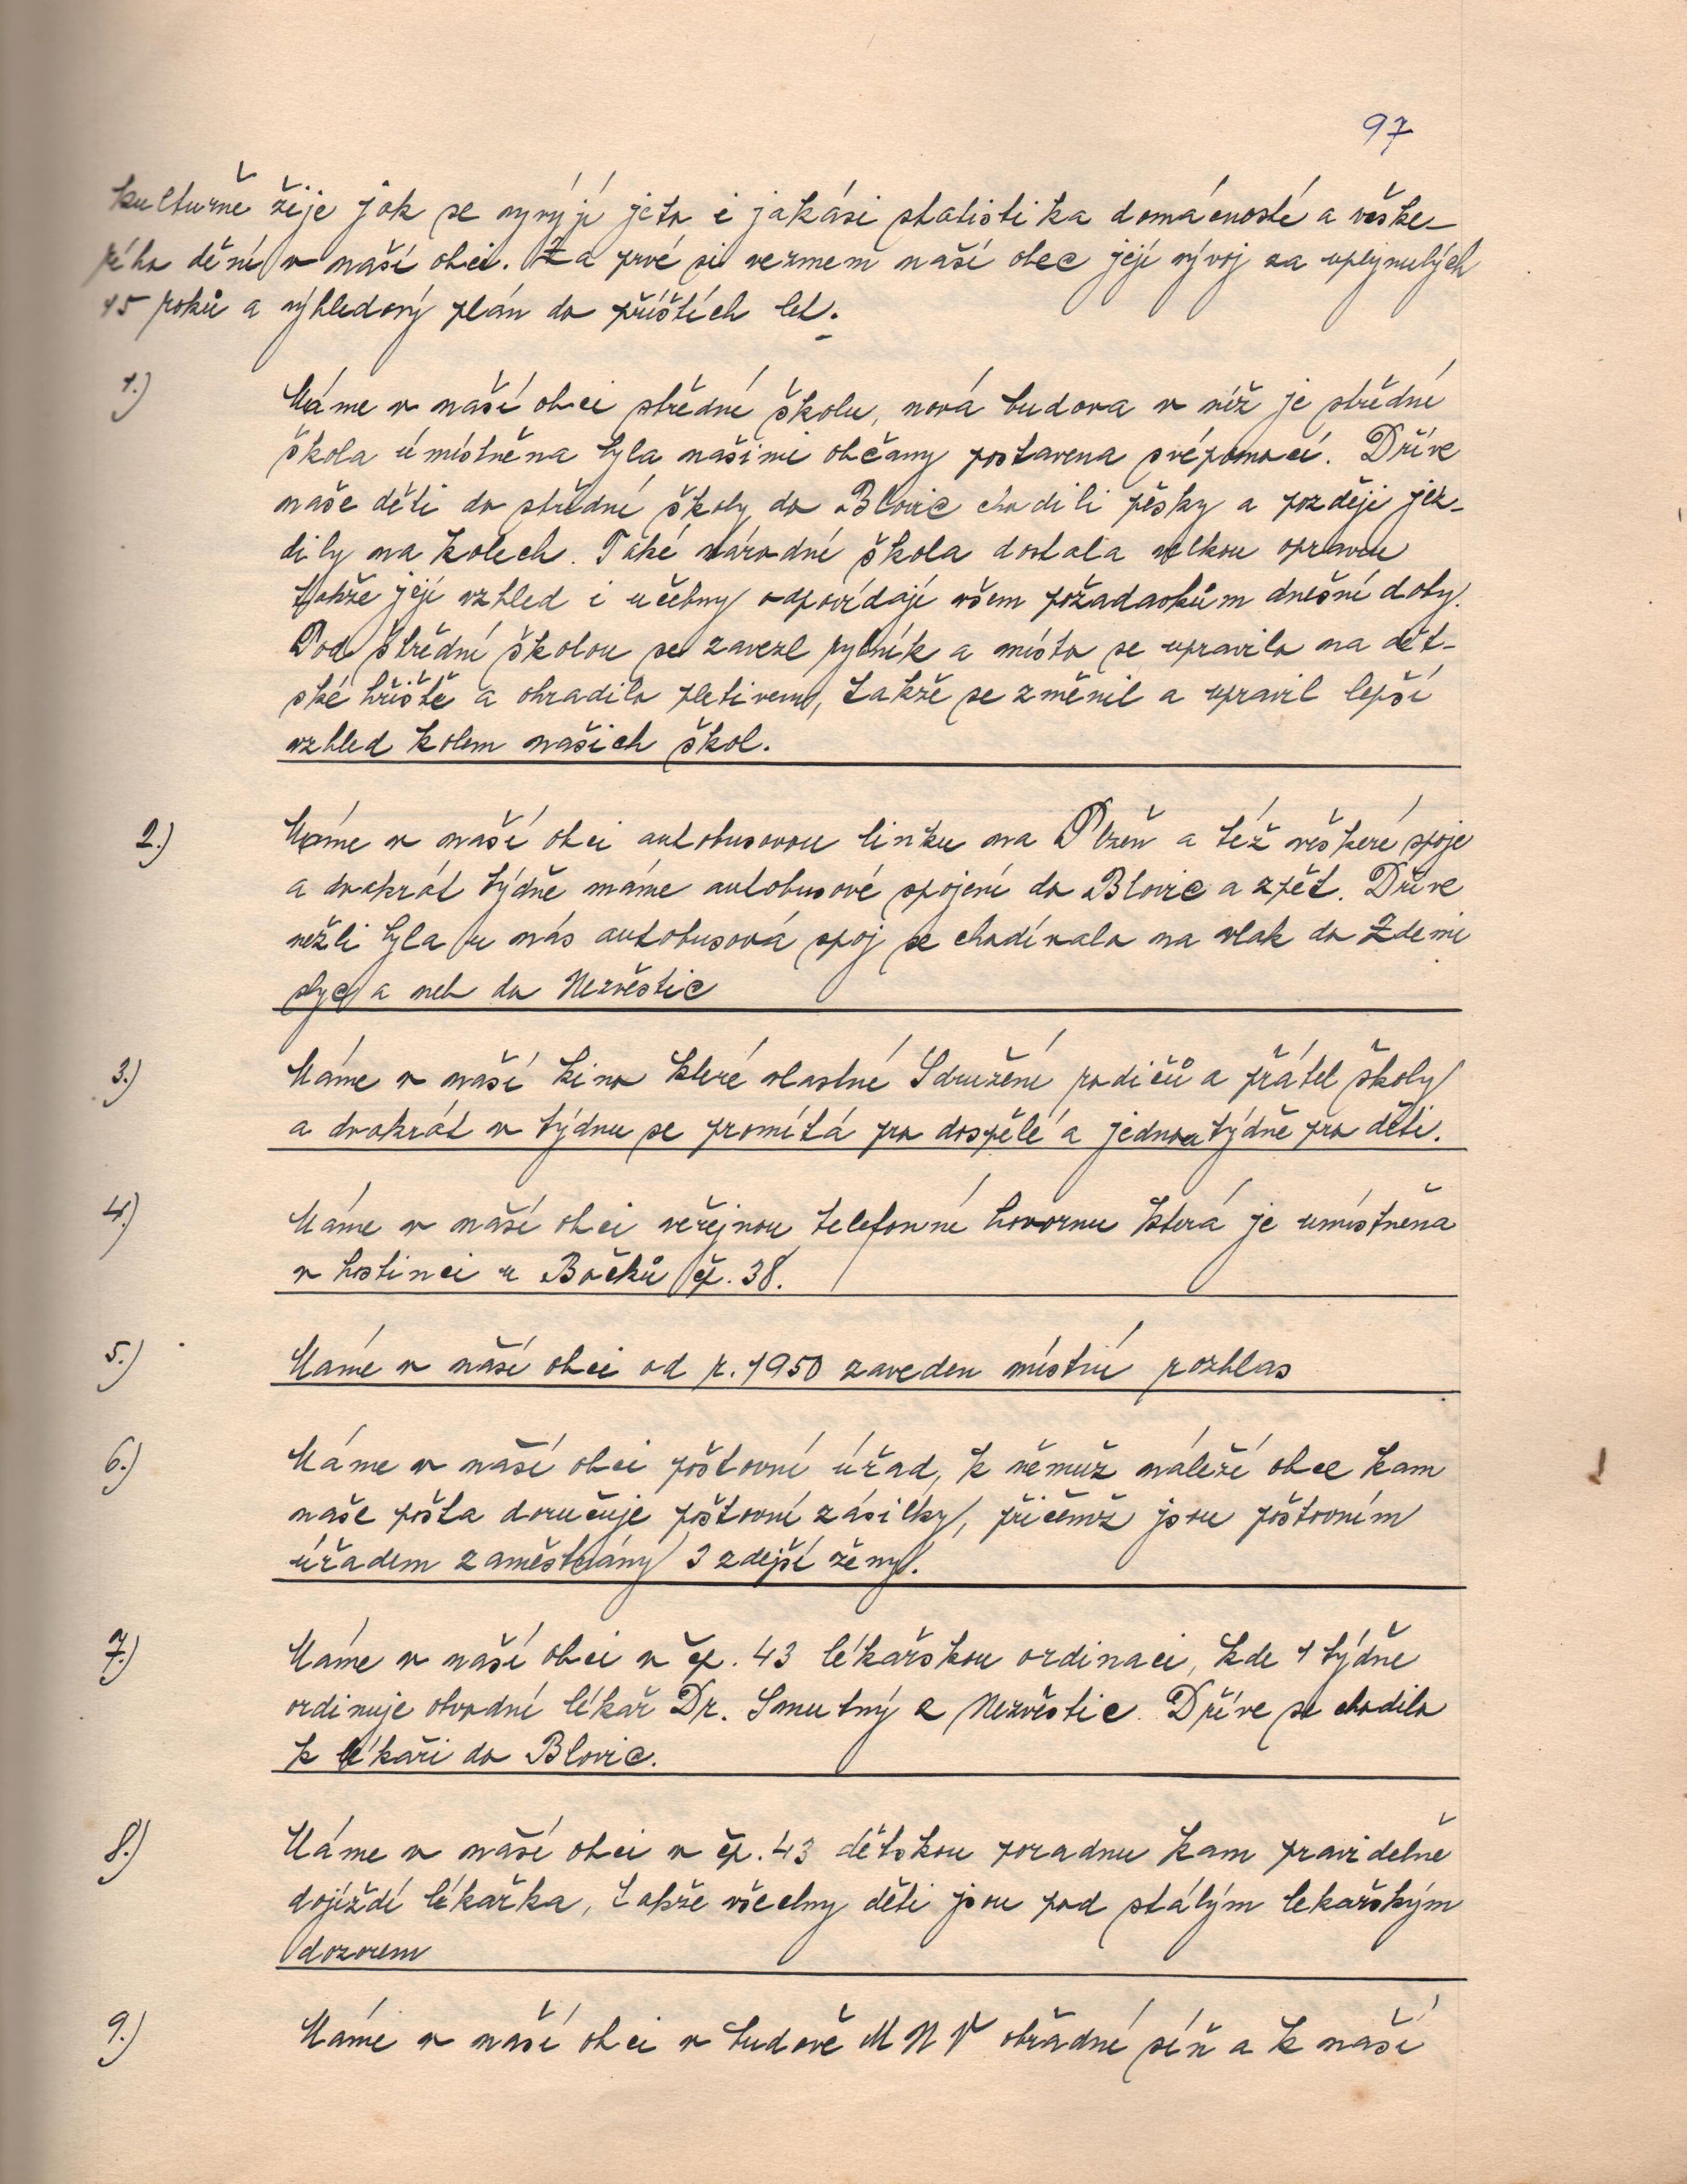 97
kulturně žije jak se vyvýjí jeto i jakási statistika domácností a veške-
rého dění v naší obci. Za prvé si vezmem naší obec její vývoj za uplynulých
15 roků a výhledový plán do příštích let.
1.) Máme v naší obci střední školu, nová budova v níž je střední
škola úmístněna byla našimi občany postavena svépomocí. Dříve
naše děti do střední školy do Blovic chodili pěšky a později jez-
dily na kolech. Také národní škola dostala velkou opravu
takže její vzhled i učebny odpovídají všem požadavkům dnešní doby.
Pod střední školou se zavezl rybník a místo se upravilo na dět-
ské hřiště a ohradilo pletivem, takže se změnil a upravil lepší
vzhled kolem našich škol.
2.) Máme v naší obci autobusovou linku na Plzeň a též veškeré spoje
a dvakrát týdně máme autobusové spojení do Blovic a zpět. Dříve
nežli byla u nás autobusová spoj se chodívalo na vlak do Ždemi
slyc a neb do Nezvěstic
3.) Máme v naší kino které vlastné Sdružení rodičů a přátel školy
a dvakrát v týdnu se promítá pro dospělé a jednou týdně pro děti.
4.) Máme v naší obci veřejnou telefonní hovornu která je umístněna
v hostinci u Bočků čp. 38.
5.) Máme v naší obci od r. 1950 zaveden místní rozhlas
6.) Máme v naší obci poštovní úřad, k němuž náleží obce kam
naše pošta doručuje poštovní zásilky, přičemž jsou poštovním
úřadem zaměstnány 3 zdejší ženy.
7.) Máme v naší obci v čp. 43 lékařskou ordinaci, kde 1 týdně
ordinuje obvodní lékař Dr. Smutný z Nezvěstic. Dříve se chodilo
k lékaři do Blovic.
8.) Máme v naší obci v čp. 43 dětskou poradnu kam pravidelně
dojíždí lékařka, takže všechny děti jsou pod stálým lekařským
dozorem
9.) Máme v naší obci v budově M N V obřadní síň a k naší